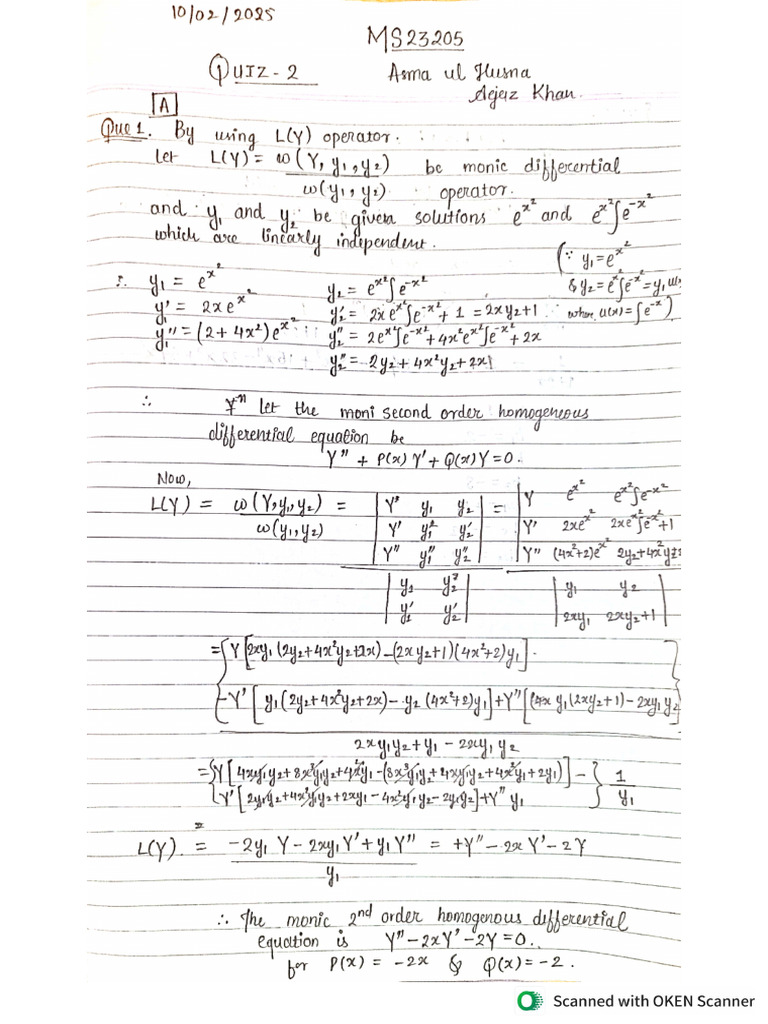 10/02/2025
MS23205
QUIZ-2 Asma ul Husna
Aejaz Khan.
A
Que 1. By using L(Y) operator.
let L(Y) = w(Y, y₁, y₂) / w(y₁, y₂) be monic differential operator.
and y₁ and y₂ be given solutions e^x² and e^x²∫e^-x²
which are linearly independent.
(∵ y₁ = e^x²
& y₂ = e^x²∫e^-x² = y₁u
where, u(x) = ∫e^-x²)
∴ y₁ = e^x² y₂ = e^x²∫e^-x²
y₁' = 2xe^x² y₂' = 2xe^x²∫e^-x² + 1 = 2xy₂+1
y₁'' = (2+4x²)e^x² y₂'' = 2e^x²∫e^-x² + 4x²e^x²∫e^-x² + 2x
y₂'' = 2y₂ + 4x²y₂ + 2x
∴ let the moni second order homogeneous
differential equation be
Y'' + P(x)Y' + Q(x)Y = 0.
Now,
L(Y) = w(Y, y₁, y₂) / w(y₁, y₂) = |Y y₁ y₂| = |Y e^x² e^x²∫e^-x²|
|Y' y₁' y₂'| |Y' 2xe^x² 2xe^x²∫e^-x²+1|
|Y'' y₁'' y₂''| |Y'' (4x²+2)e^x² 2y₂+4x²y₂
|y₁ y₂| |y₁ y₂|
|y₁' y₂'| |2xy₁ 2xy₂+1|
= {Y[2xy₁(2y₂+4x²y₂+2x) - (2xy₂+1)(4x²+2)y₁]
-Y'[y₁(2y₂+4x²y₂+2x) - y₂(4x²+2)y₁] + Y''[ y₁(2xy₂+1) - 2xy₁y₂]}
2xy₁y₂ + y₁ - 2xy₁y₂
= {Y[4xy₁y₂ + 8x³y₁y₂ + 4x²y₁ - (8x³y₁y₂ + 4xy₁y₂ + 4x²y₁ + 2y₁)] -
Y'[2y₁y₂ + 4x²y₁y₂ + 2xy₁ - 4x²y₁y₂ - 2y₁y₂] + Y''y₁} 1/y₁
L(Y) = (-2y₁Y - 2xy₁Y' + y₁Y'') / y₁ = +Y'' - 2xY' - 2Y
∴ The monic 2nd order homogenous differential
equation is Y'' - 2xY' - 2Y = 0.
for P(x) = -2x & Q(x) = -2.
Scanned with OKEN Scanner